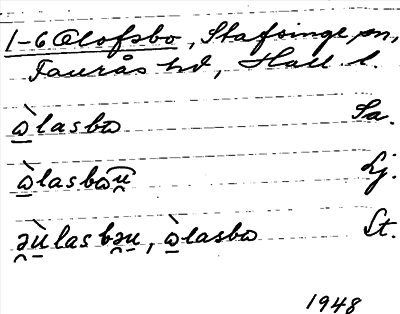 1-6 Olofsbo, Stafsinge sn,
Faurås hd, Hall. l.
ὼlasbω Sa.
ὼlasbωu̯ Lj.
ə̯ùlasbə̯u, ὼlasbω St.
1948